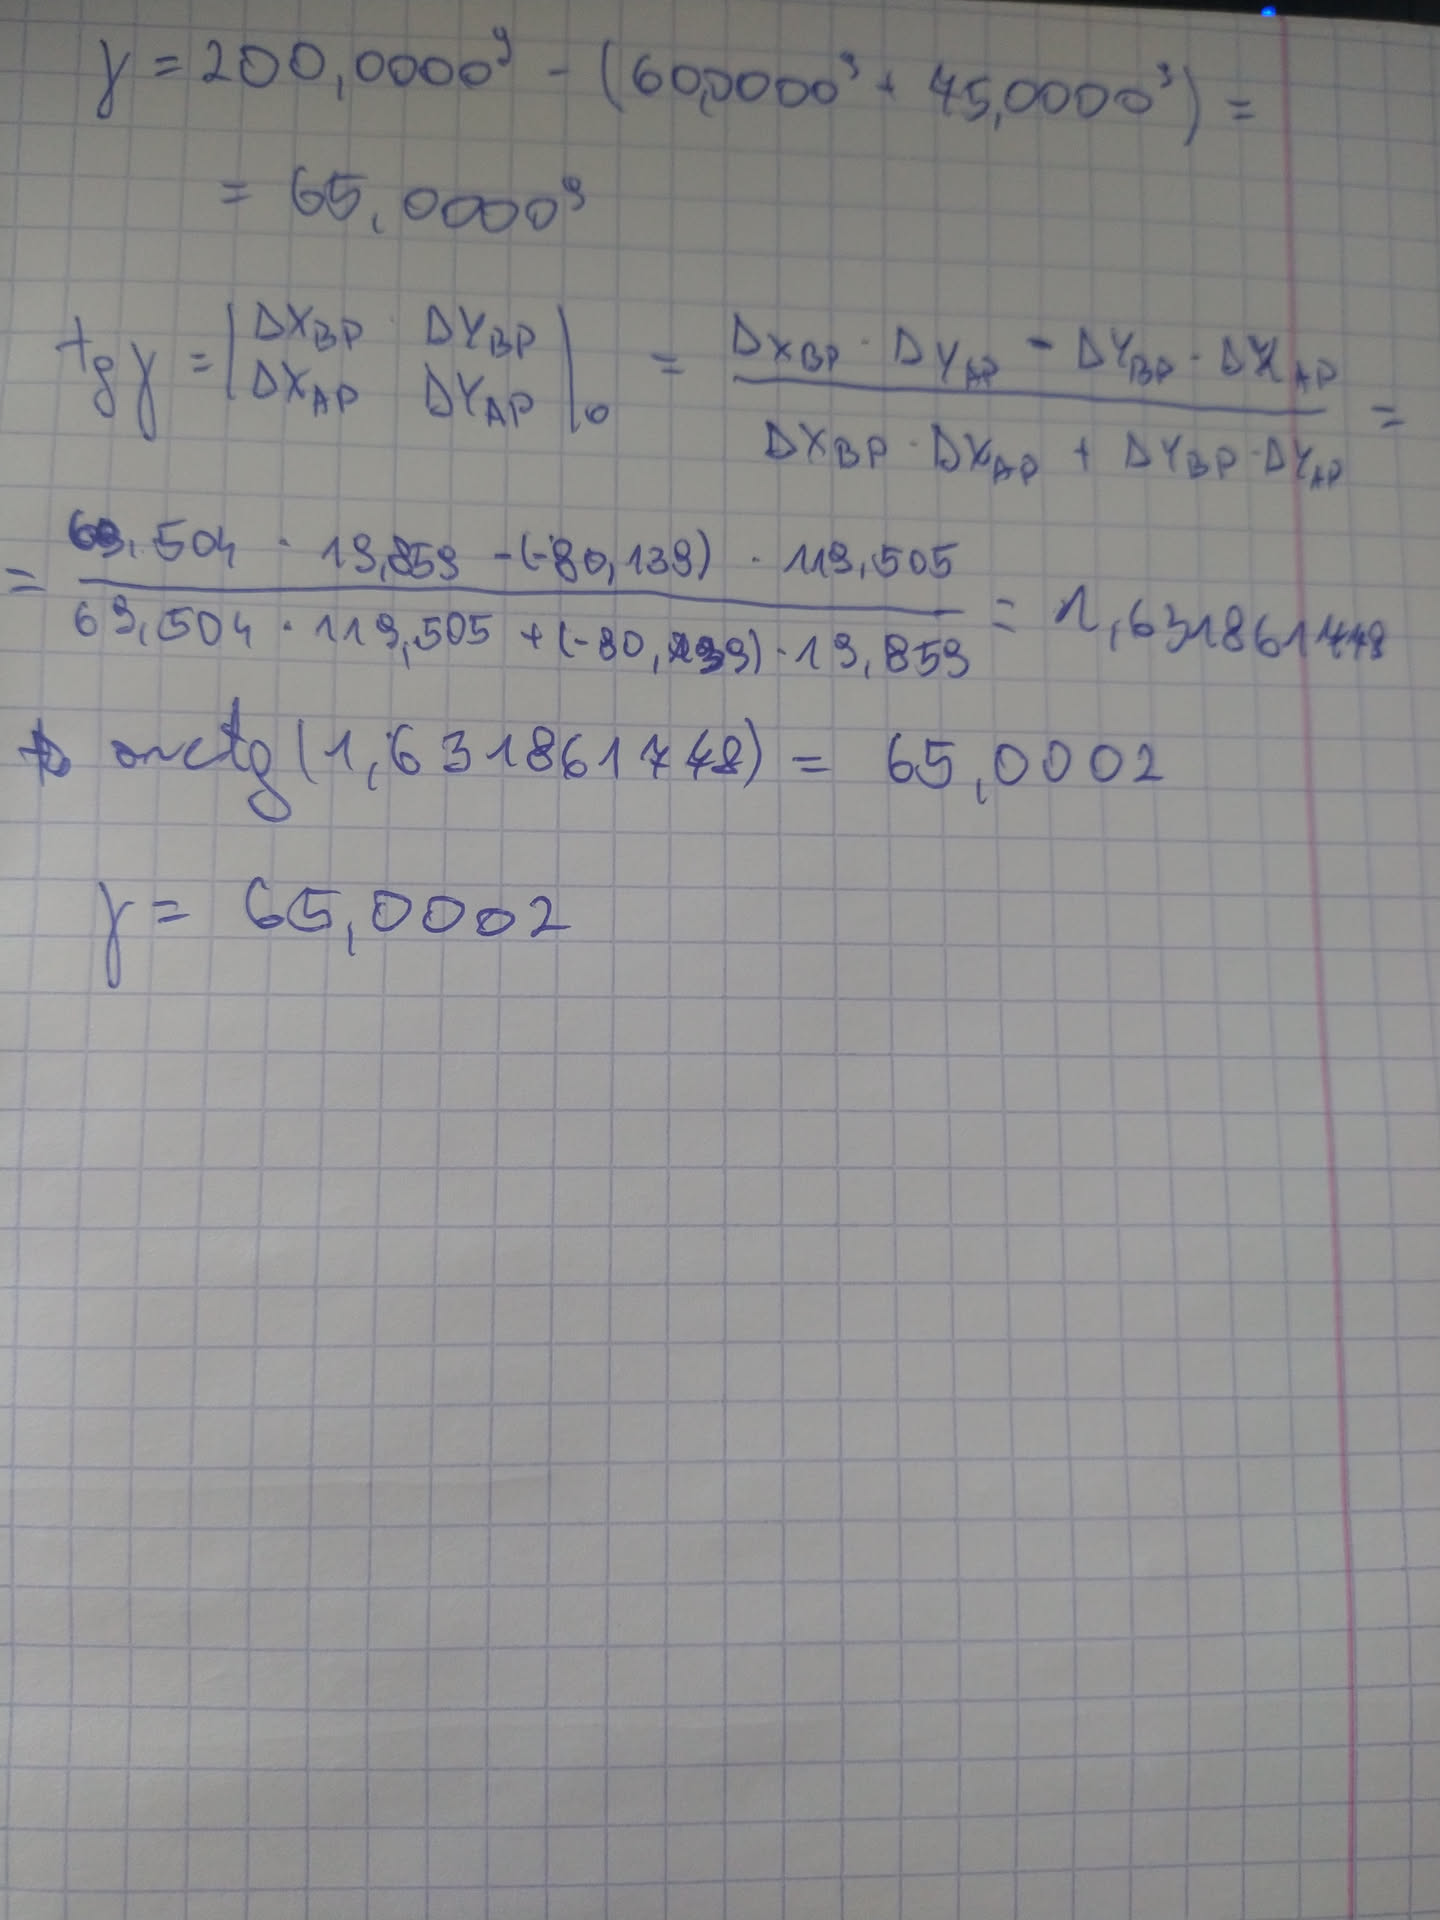 γ = 200,0000^g - (60,0000^g + 45,0000^g) =
= 65,0000^g
tg γ = |ΔX_BP ΔY_BP; ΔX_AP ΔY_AP|_0 = (ΔX_BP · ΔY_AP - ΔY_BP · ΔX_AP) / (ΔX_BP · ΔX_AP + ΔY_BP · ΔY_AP) =
= (69,504 · 19,859 - (-80,139) · 119,505) / (69,504 · 119,505 + (-80,139) · 19,859) = 1,631861748
arctg (1,631861748) = 65,0002
γ = 65,0002